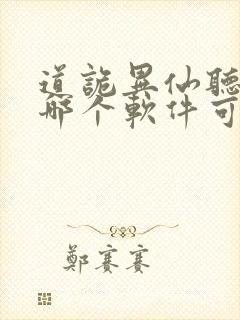 道詭異仙聽
哪个軟件可
鄭賽賽